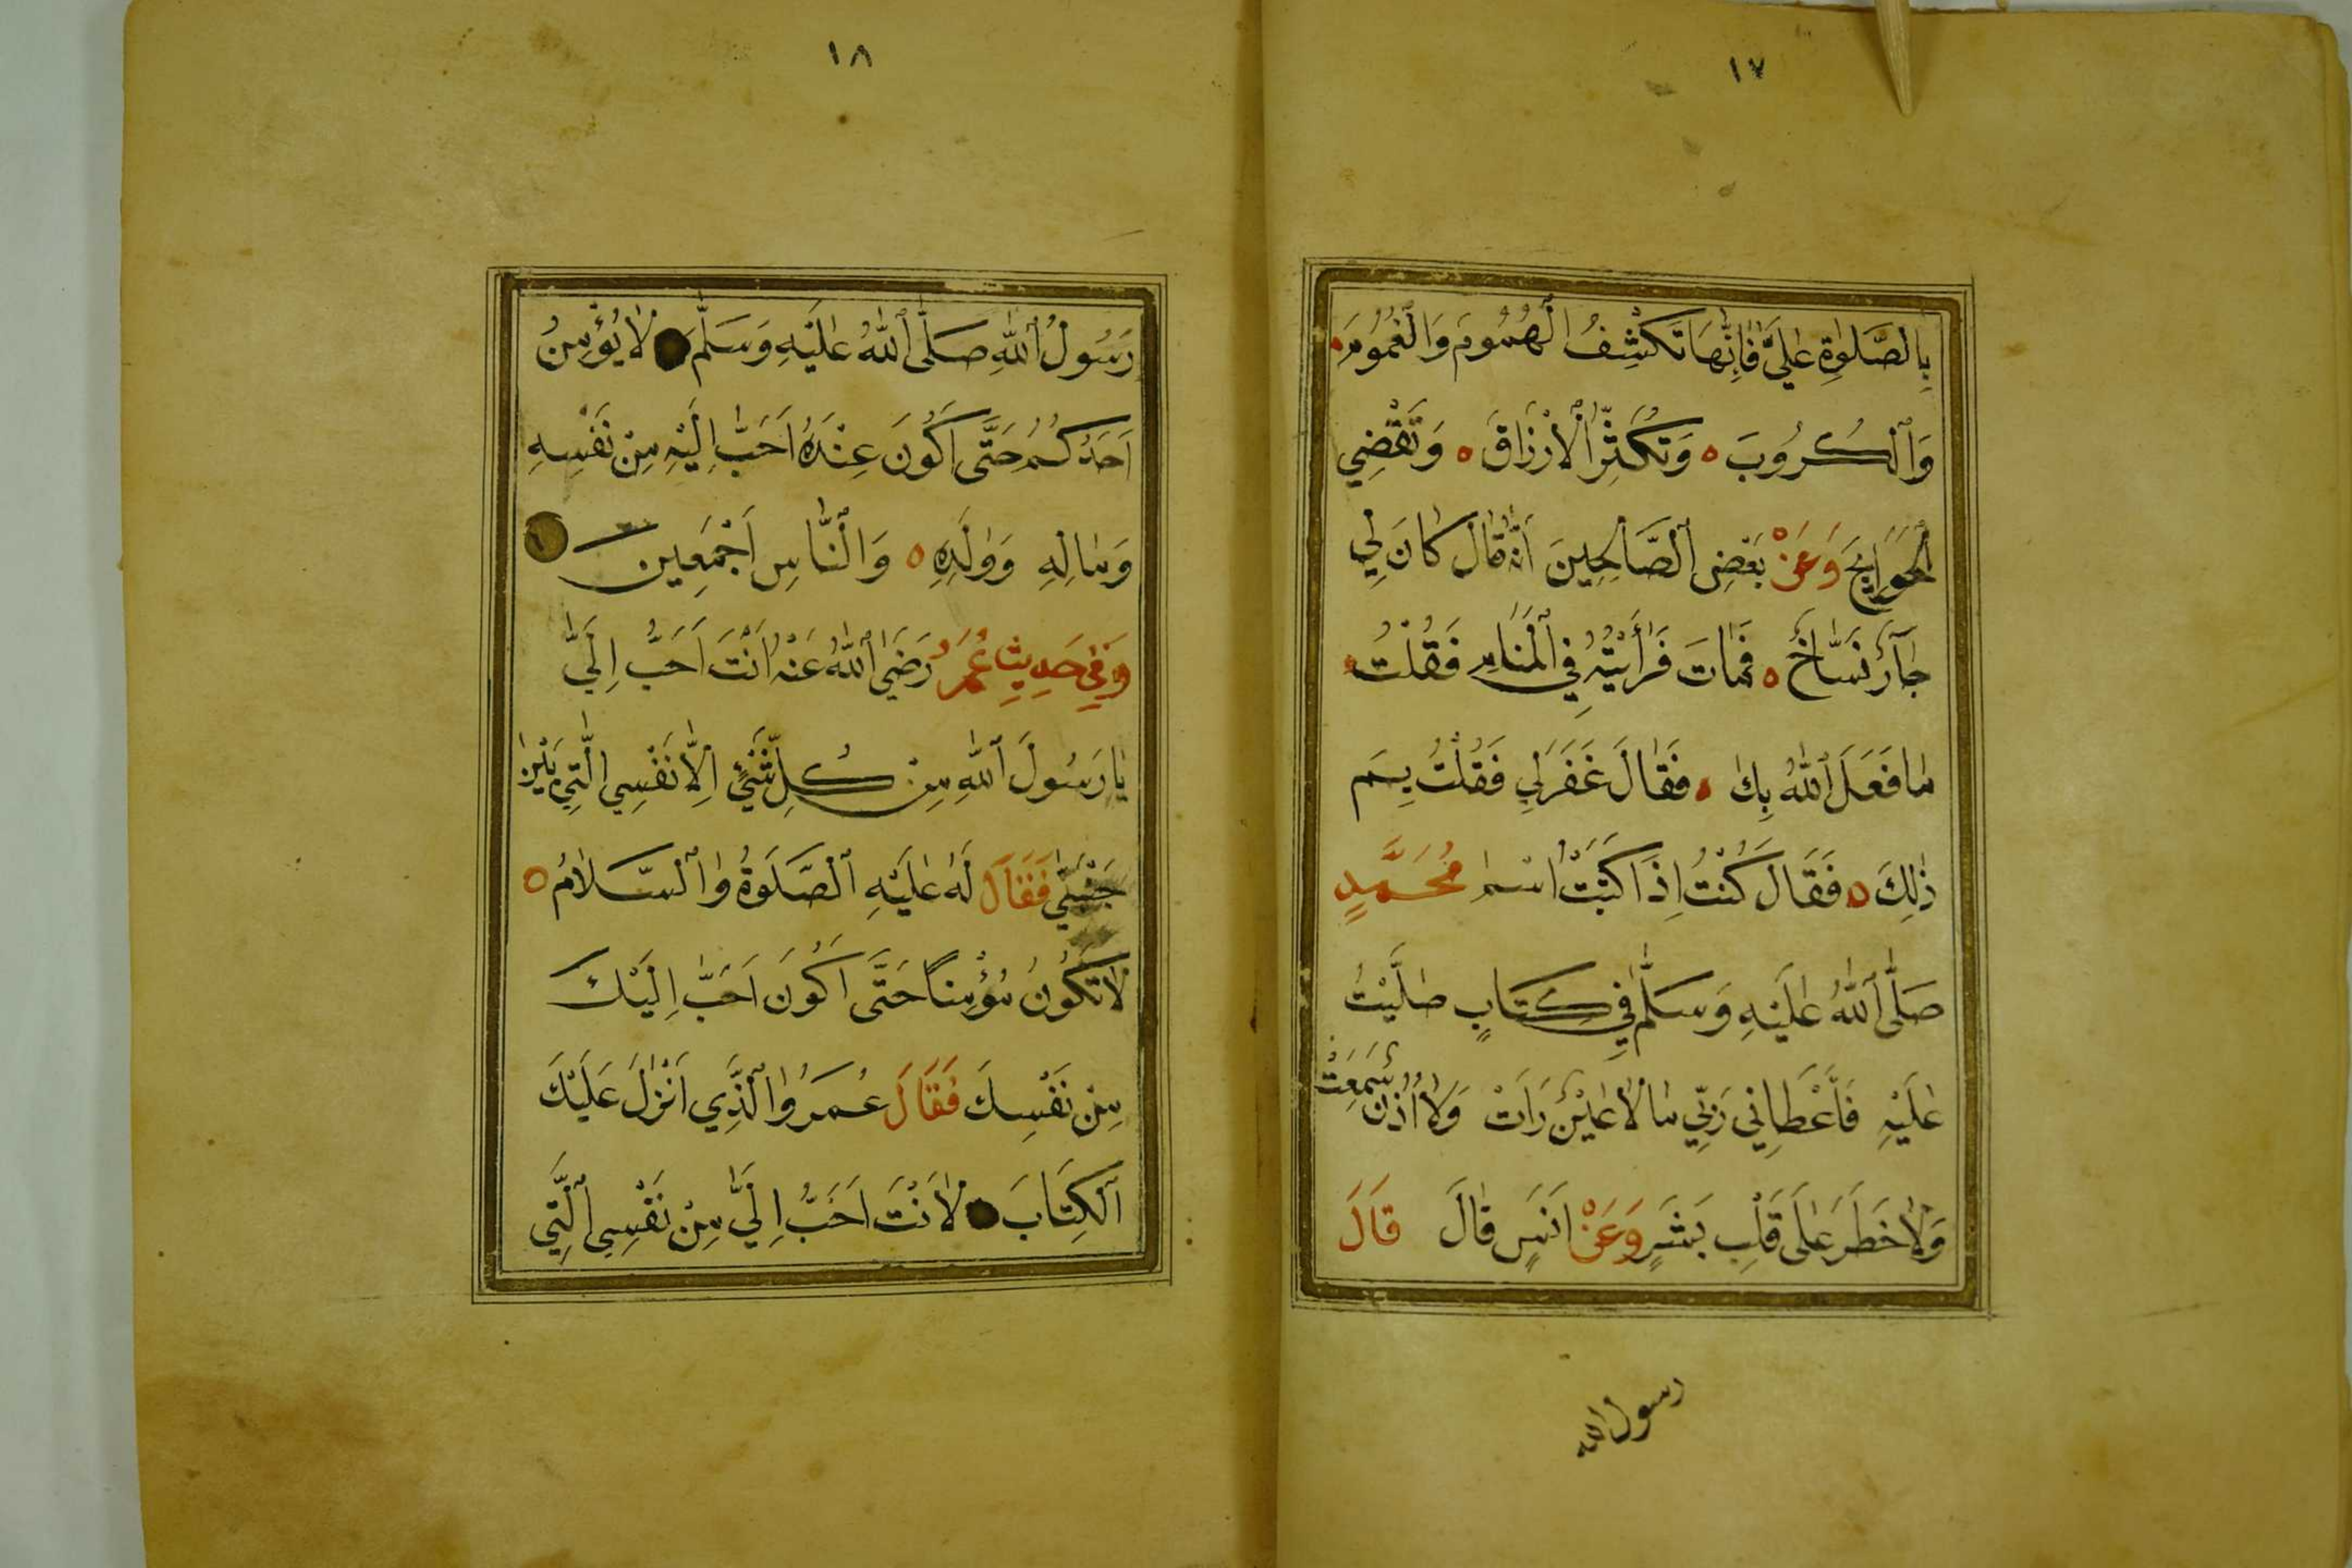 ١٧
بِالصَّلوٰةِ عَلَيَّ فَاِنَّهَا تَكْشِفُ الْهُمُومَ وَالْغُمُومَ
وَالْكُرُوبَ وَتُكَثِّرُ الْاَرْزَاقَ وَتَقْضِي
الْحَوَايِجَ وَعَنْ بَعْضِ الصَّالِحِينَ اَنَّهُ قَالَ كَانَ لِي
جَارٌ نَسَّاخٌ فَمَاتَ فَرَأَيْتُهُ فِي الْمَنَامِ فَقُلْتُ
مَا فَعَلَ اللّٰهُ بِكَ فَقَالَ غَفَرَ لِي فَقُلْتُ بِمَ
ذٰلِكَ فَقَالَ كُنْتُ اِذَا كَتَبْتُ اسْمَ مُحَمَّدٍ
صَلَّى اللّٰهُ عَلَيْهِ وَسَلَّمَ فِي كِتَابٍ صَلَّيْتُ
عَلَيْهِ فَاَعْطَانِي رَبِّي مَا لَا عَيْنٌ رَاَتْ وَلَا اُذُنٌ سَمِعَتْ
وَلَا خَطَرَ عَلَى قَلْبِ بَشَرٍ وَعَنْ اَنَسٍ قَالَ قَالَ
رسول الله
١٨
رَسُولُ اللّٰهِ صَلَّى اللّٰهُ عَلَيْهِ وَسَلَّمَ لَا يُؤْمِنُ
اَحَدُكُمْ حَتَّى اَكُونَ عِنْدَهُ اَحَبَّ اِلَيْهِ مِنْ نَفْسِهِ
وَمَالِهِ وَوَلَدِهِ وَالنَّاسِ اَجْمَعِينَ
وَفِي حَدِيثِ عُمَرَ رَضِيَ اللّٰهُ عَنْهُ اَنْتَ اَحَبُّ اِلَيَّ
يَا رَسُولَ اللّٰهِ مِنْ كُلِّ شَيْءٍ اِلَّا نَفْسِي الَّتِي بَيْنَ
جَنْبَيَّ فَقَالَ لَهُ عَلَيْهِ الصَّلَوةُ وَالسَّلَامُ
لَا تَكُونُ مُؤْمِنًا حَتَّى اَكُونَ اَحَبَّ اِلَيْكَ
مِنْ نَفْسِكَ فَقَالَ عُمَرُ وَالَّذِي اَنْزَلَ عَلَيْكَ
الْكِتَابَ لَاَنْتَ اَحَبُّ اِلَيَّ مِنْ نَفْسِي الَّتِي